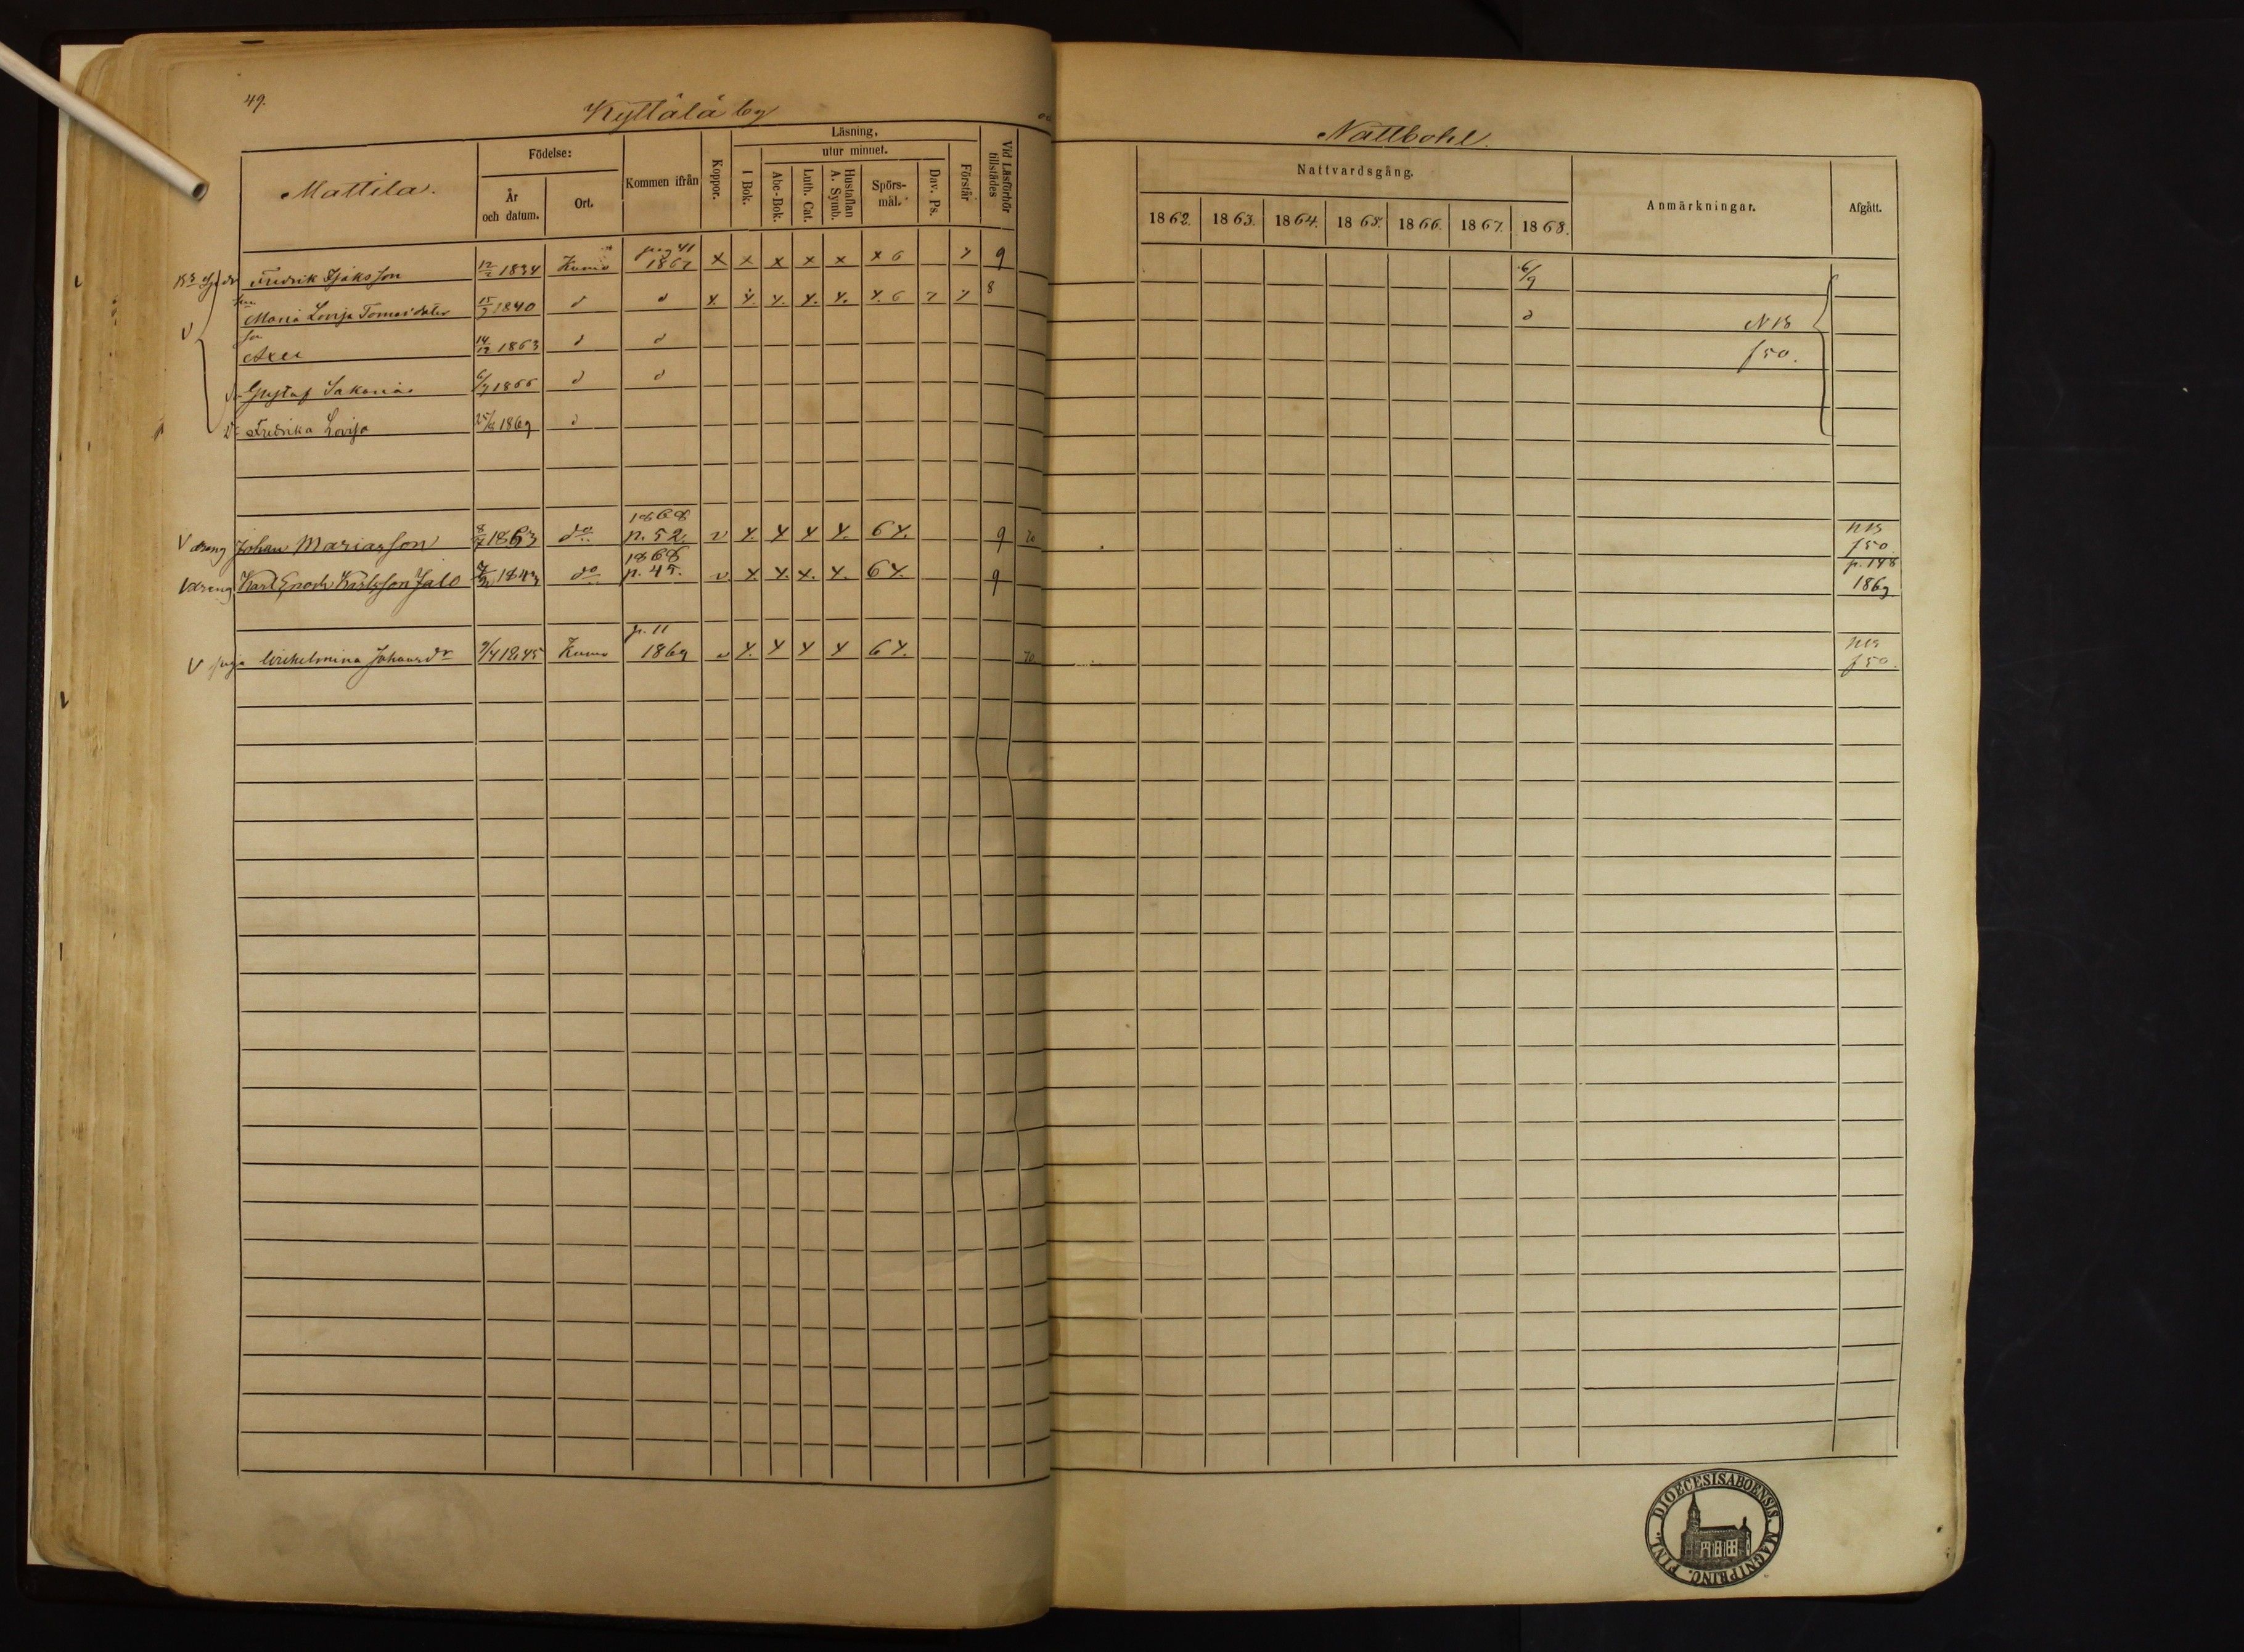 49.
Kyttälä by
Nattbohl.
Mattila.
Födelse:
År
och datum.
Ort.
Kommen ifrån
Koppor.
Läsning.
I Bok.
utur minnet.
Abc-Bok.
Luth. Cat.
Hustaflan
A. Symb.
Spörs-
mål.
Dav. Ps.
Förstår
Vid Läsförhör
tillstädes
Nattvardsgång.
1862. 1863. 1864. 1865. 1866. 1867. 1868.
Anmärkningar.
Afgått.
Fredrik Isaksson 12/2 1834 Kumo pag 41 1867 x x x x x x 6 9 6/9
Maria Lovisa Tomasdoter 1840 d d x. x. x. x. x. x. 6 8 d
N B
f 50.
Axel 14/12 1863 d d
Gustaf Sakarias 1866 d d
Fredrika Lovisa 1869 d
dreng Johan Mariasson 1863 do 1868 p. 52. v x x x x. 6 x. 9 70 NB f 50.
dreng Karl Enoch Karlsson Jalo 1843 do 1868 p. 45. v x x. x. x. 6 x. 9 p. 148 1869
piga Wilhelmina Johansdr 1845 Kumo p. 11 1869 v x. x x x 6 x. 70 NB f 50.
FINL. DIOECESIS ABOENSIS. MAGNI PRINC.